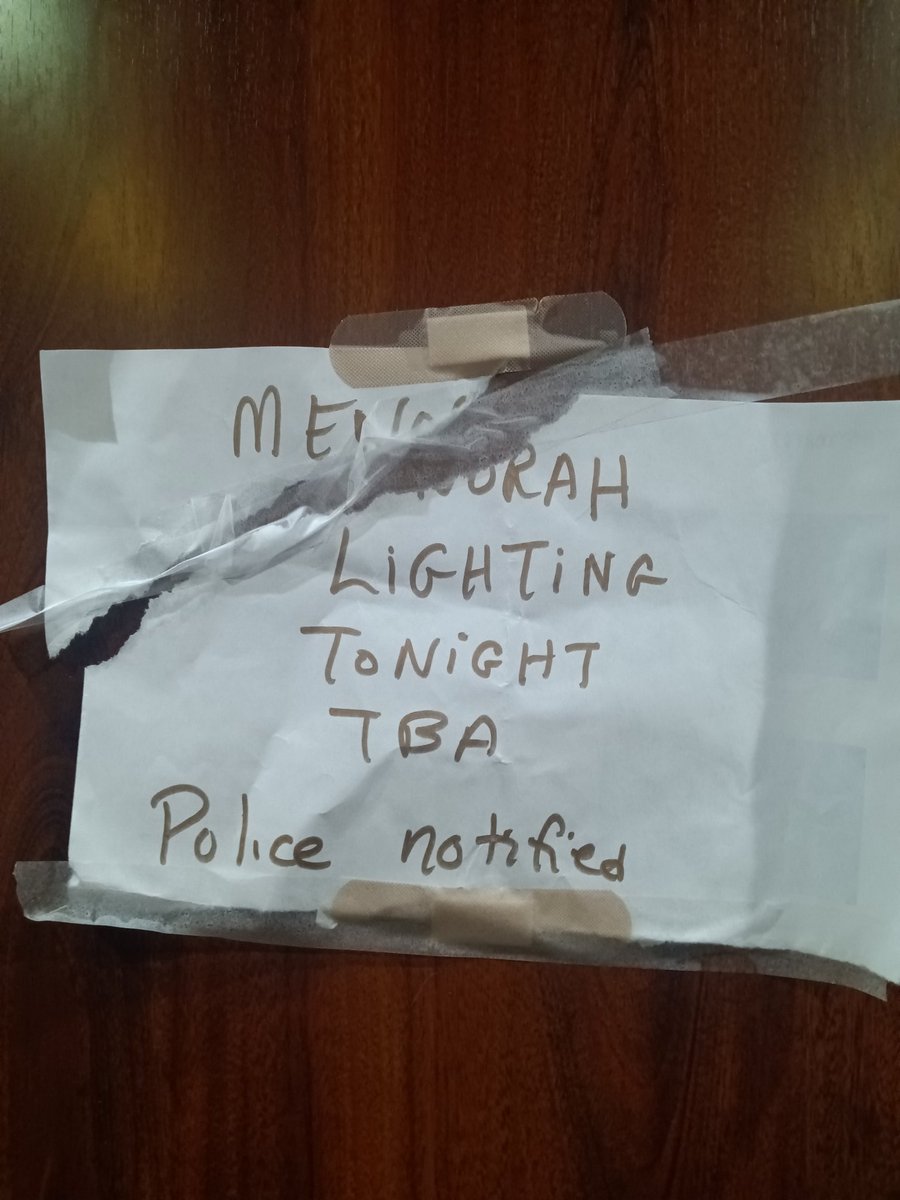 MENORAH
LiGHTiNG
TONiGHT
TBA
Police notified